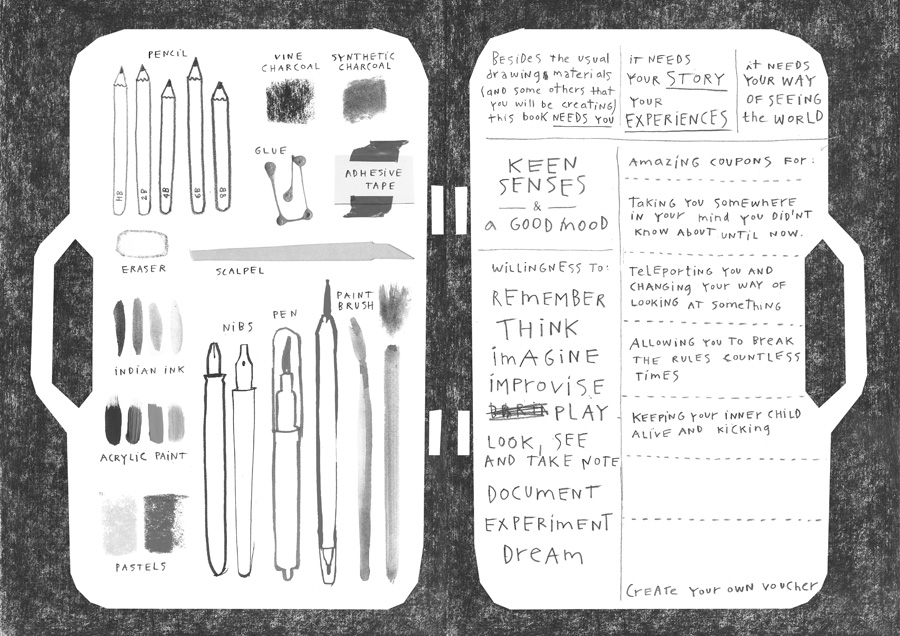 PENCIL
VINE
CHARCOAL
SYNTHETIC
CHARCOAL
HB
2B
4B
6B
8B
GLUE
ADHESIVE
TAPE
ERASER
SCALPEL
INDIAN INK
NIBS
PEN
PAINT
BRUSH
ACRYLIC PAINT
PASTELS
BESIDES the usual
drawing materials
(and some others that
you will be creating)
this book NEEDS YOU
IT NEEDS
YOUR STORY
YOUR
EXPERIENCES
it NEEDS
YOUR WAY
OF SEEING
the WORLD
KEEN
SENSES
&
a GOOD MOOD
WILLINGNESS TO:
REMEMBER
THINK
IMAGINE
IMPROVISE
PLAY
LOOK, SEE
AND TAKE NOTE
DOCUMENT
EXPERIMENT
DREAM
AMAZING COUPONS FOR:
TAKING YOU SOMEWHERE
IN YOUR MIND YOU DIDN'T
KNOW ABOUT UNTIL NOW.
TELEPORTING YOU AND
CHANGING YOUR WAY OF
LOOKING AT SOMETHING
ALLOWING YOU TO BREAK
THE RULES COUNTLESS
TIMES
KEEPING YOUR INNER CHILD
ALIVE AND KICKING
CREATE YOUR OWN VOUCHER